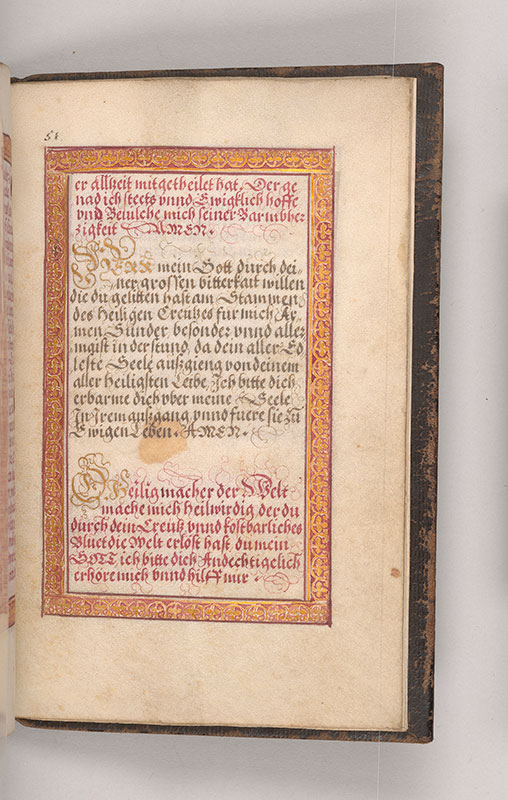 58
er allzeit mitgetheilet hat, Der ge
nad ich steets vnnd Ewigklich hoffe
vnd Beuilche mich seiner Barmbhe:
zigkeit AMEN.
HERR mein Gott durch dei-
ner grossen bitterkait willen
die du gelitten hast am Stammen
des Heiligen Creützes für mich Ar-
men Sünder, besonder vnnd aller
maist in der stund, da dein aller Ed
leste Seele außgieng von deinem
aller heiligsten Leibe, Ich bitte dich
erbarme dich vber meine Seele
In Irem außgang vnnd fuere sie Zu
Ewigen Leben. AMEN.
O Heiligmacher der Welt
mache mich Heilwirdig der du
durch dein Creütz vnnd kostbarliches
Bluet die Welt erlöst hast du mein
GOTT ich bitte dich Andechtigelich
erhöre mich vnnd hilff mir.